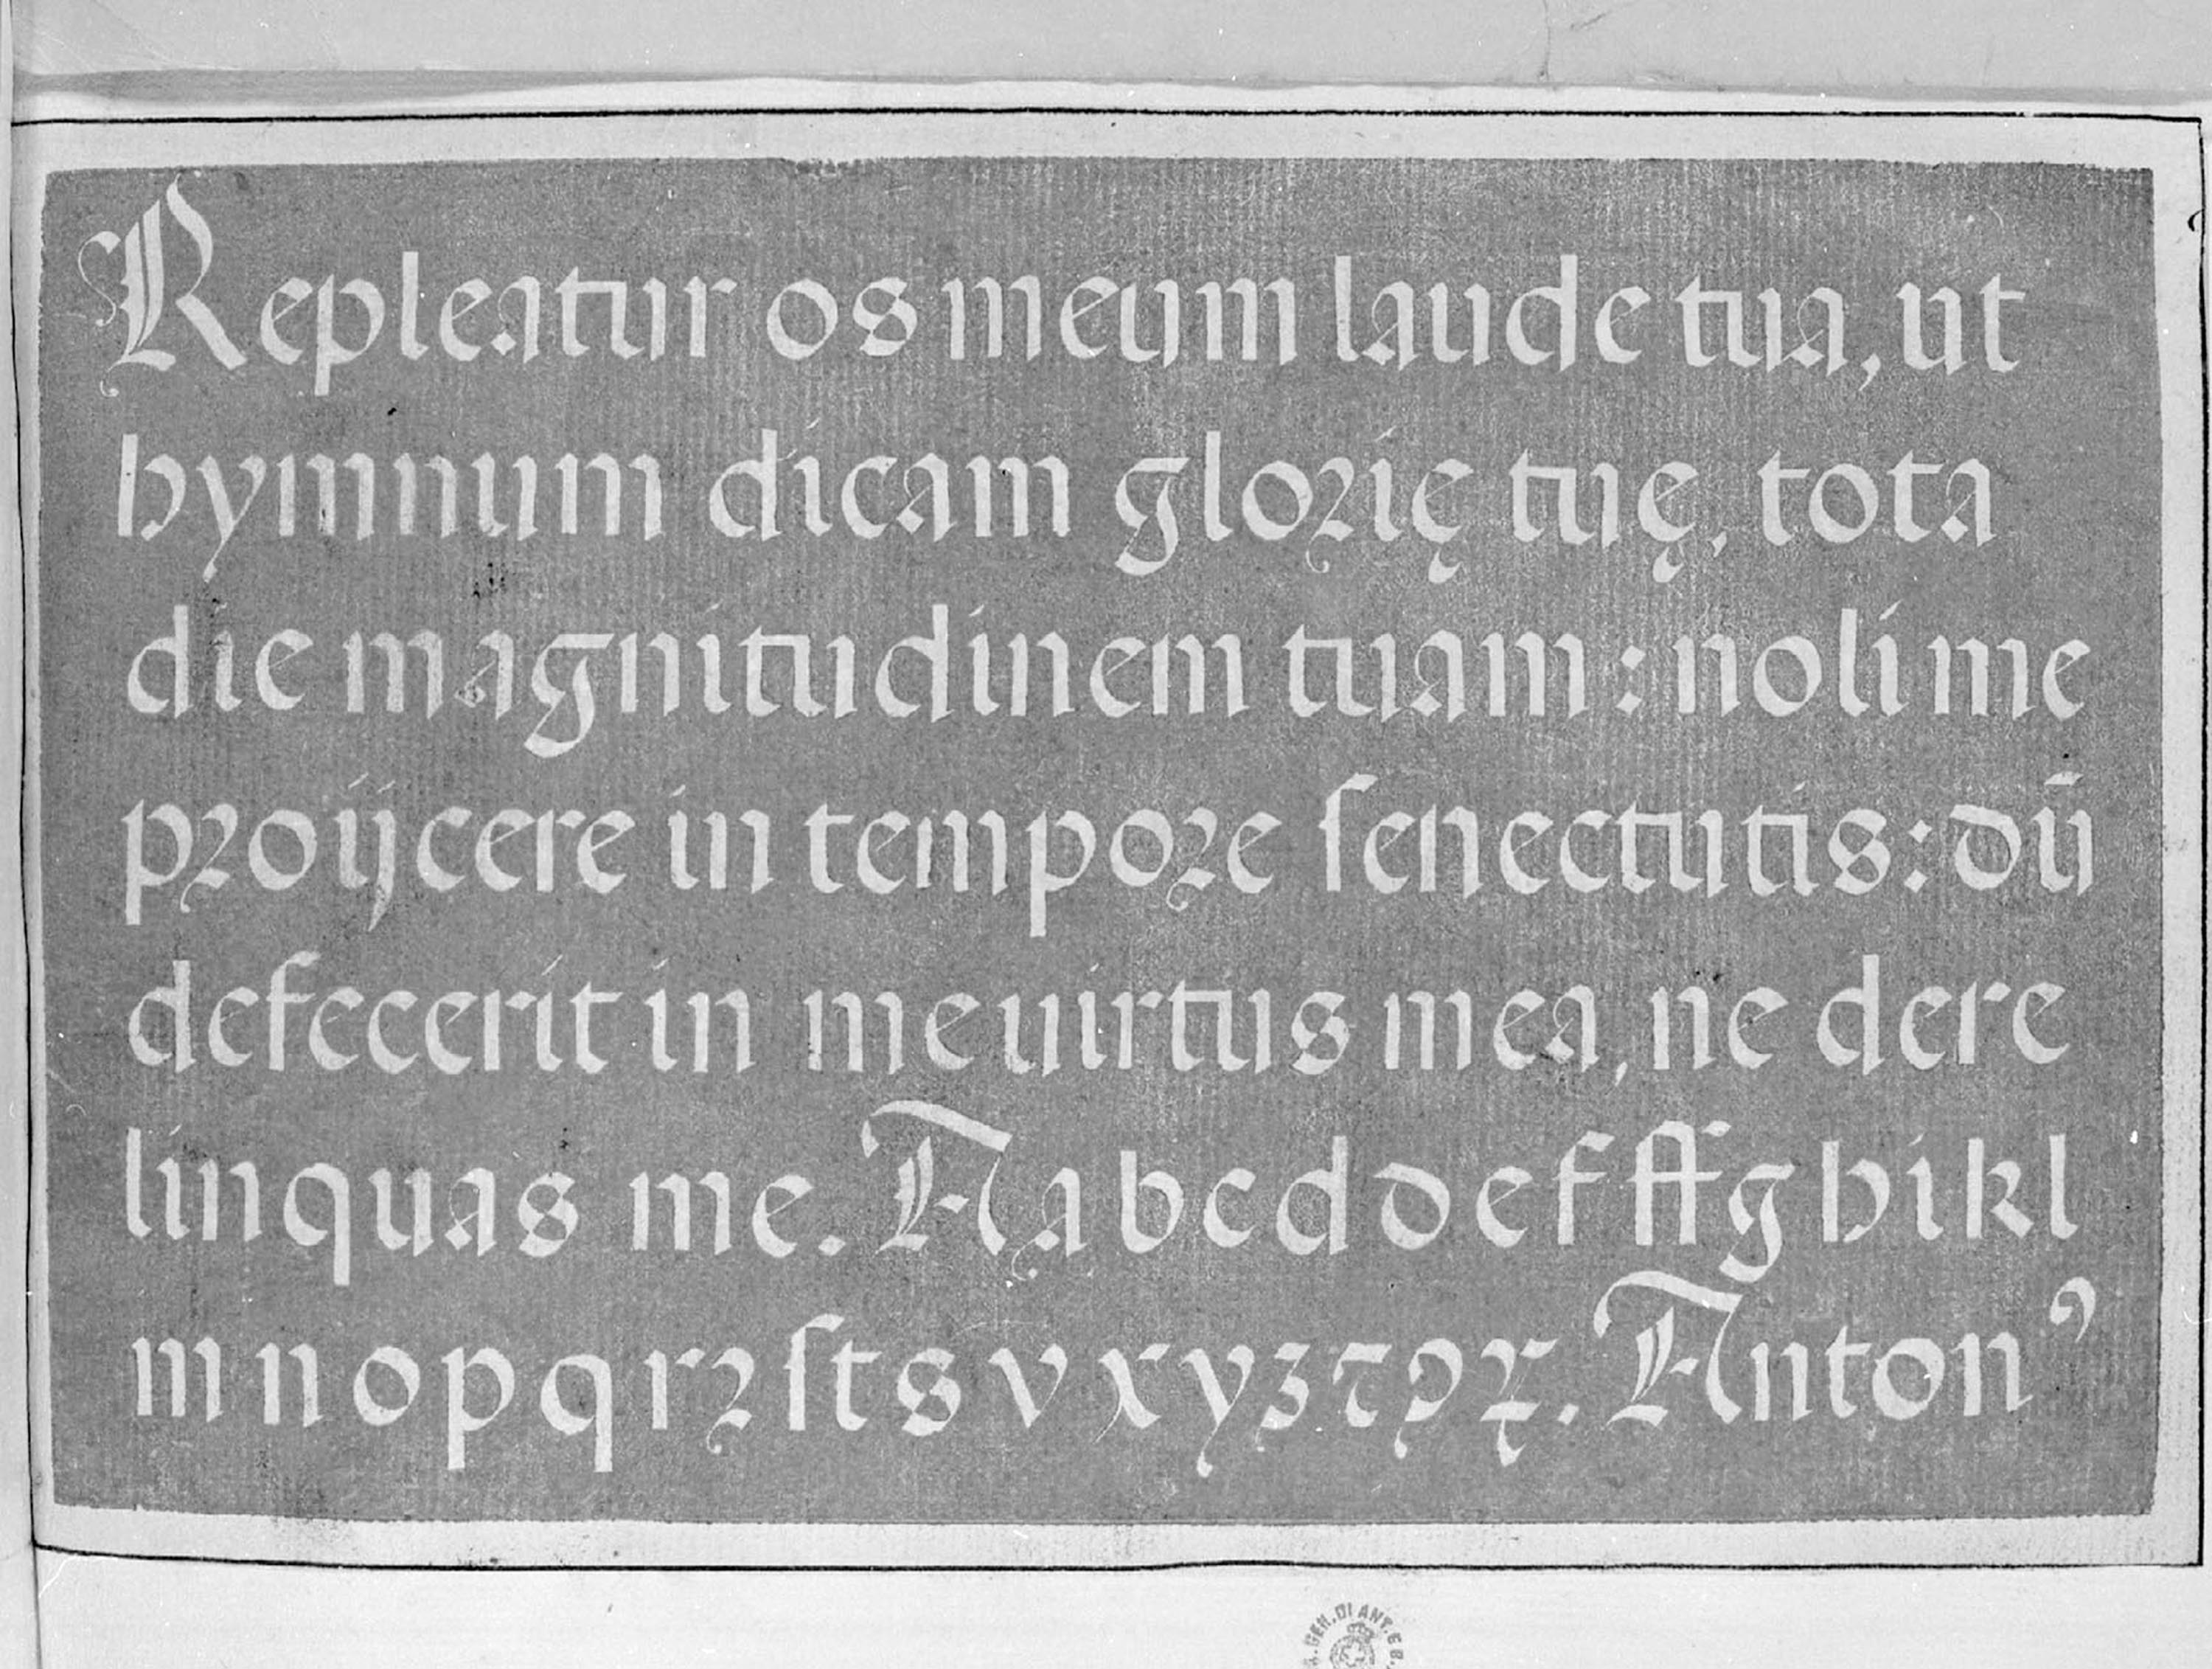 Repleatur os meum laude tua, ut
hymnum dicam glorię tuę, tota
die magnitudinem tuam: noli me
proijcere in tempore ſenectutis: dū
defecerit in me uirtus mea, ne dere
linquas me. A a b c d d e f ff g h i k l
m n o p q r ꝛ ſ t s v x y z τ ꝯ ꝝ. Antonꝰ
GEN. DI ANT. E B.